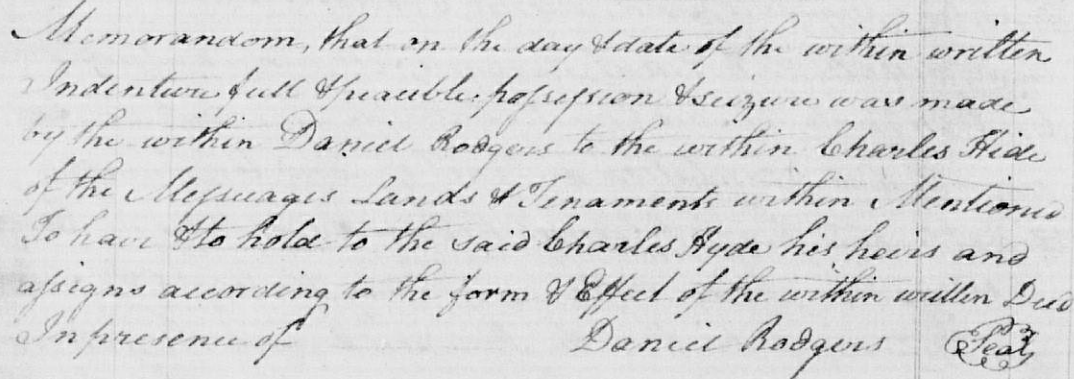 Memorandom, that on the day & date of the within written
Indenture full & peacible possession & seizure was made
by the within Daniel Rodgers to the within Charles Hide
of the Messuages Lands & Tenaments within Mentioned
To have & to hold to the said Charles Hyde his heirs and
assigns according to the form & Effect of the within written Deed
In presence of Daniel Rodgers Seal